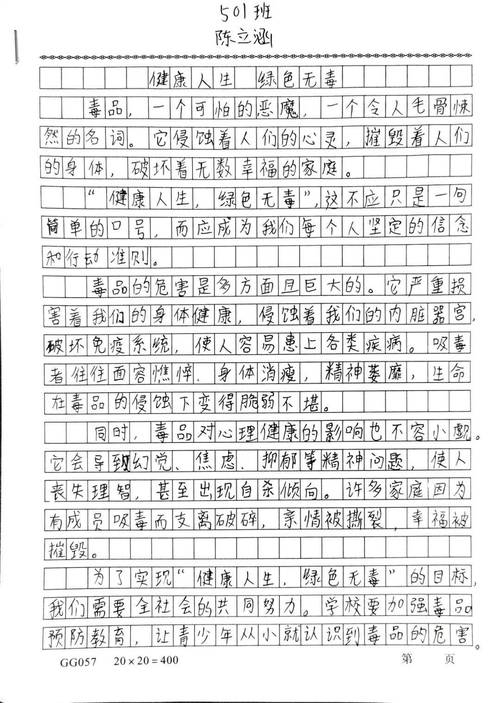 501班
陈立涵
健康人生 绿色无毒
毒品，一个可怕的恶魔，一个令人毛骨悚
然的名词。它侵蚀着人们的心灵，摧毁着人们
的身体，破坏着无数幸福的家庭。
“健康人生，绿色无毒”，这不应只是一句
简单的口号，而应成为我们每个人坚定的信念
和行动准则。
毒品的危害是多方面且巨大的。它严重损
害着我们的身体健康，侵蚀着我们的内脏器官，
破坏免疫系统，使人容易患上各类疾病。吸毒
者往往面容憔悴、身体消瘦，精神萎靡，生命
在毒品的侵蚀下变得脆弱不堪。
同时，毒品对心理健康的影响也不容小觑。
它会导致幻觉、焦虑、抑郁等精神问题，使人
丧失理智，甚至出现自杀倾向。许多家庭因为
有成员吸毒而支离破碎，亲情被撕裂，幸福被
摧毁。
为了实现“健康人生，绿色无毒”的目标，
我们需要全社会的共同努力。学校要加强毒品
预防教育，让青少年从小就认识到毒品的危害。
GG057 20×20=400 第 页